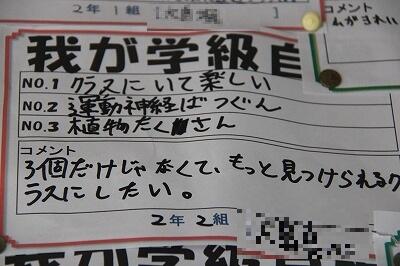 2年 1組
コメント
我が学級自
NO.1 クラスにいて楽しい
NO.2 運動神経ばつぐん
NO.3 植物たくさん
コメント
3個だけじゃなくて、もっと見つけられるク
ラスにしたい。
2年 2組
我が学級自